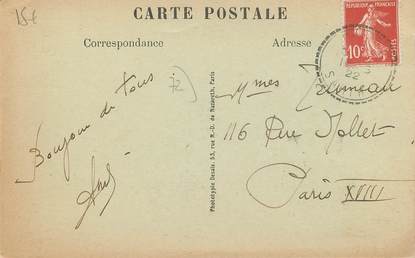 15€
CARTE POSTALE
Correspondance
Adresse
RÉPUBLIQUE FRANÇAISE
10c
POSTES
22
72
Bonjour de tous
Phototypie Desaix, 53, rue N.-D. de Nazareth, Paris
Mmes
116 Rue Nollet
Paris XVIII